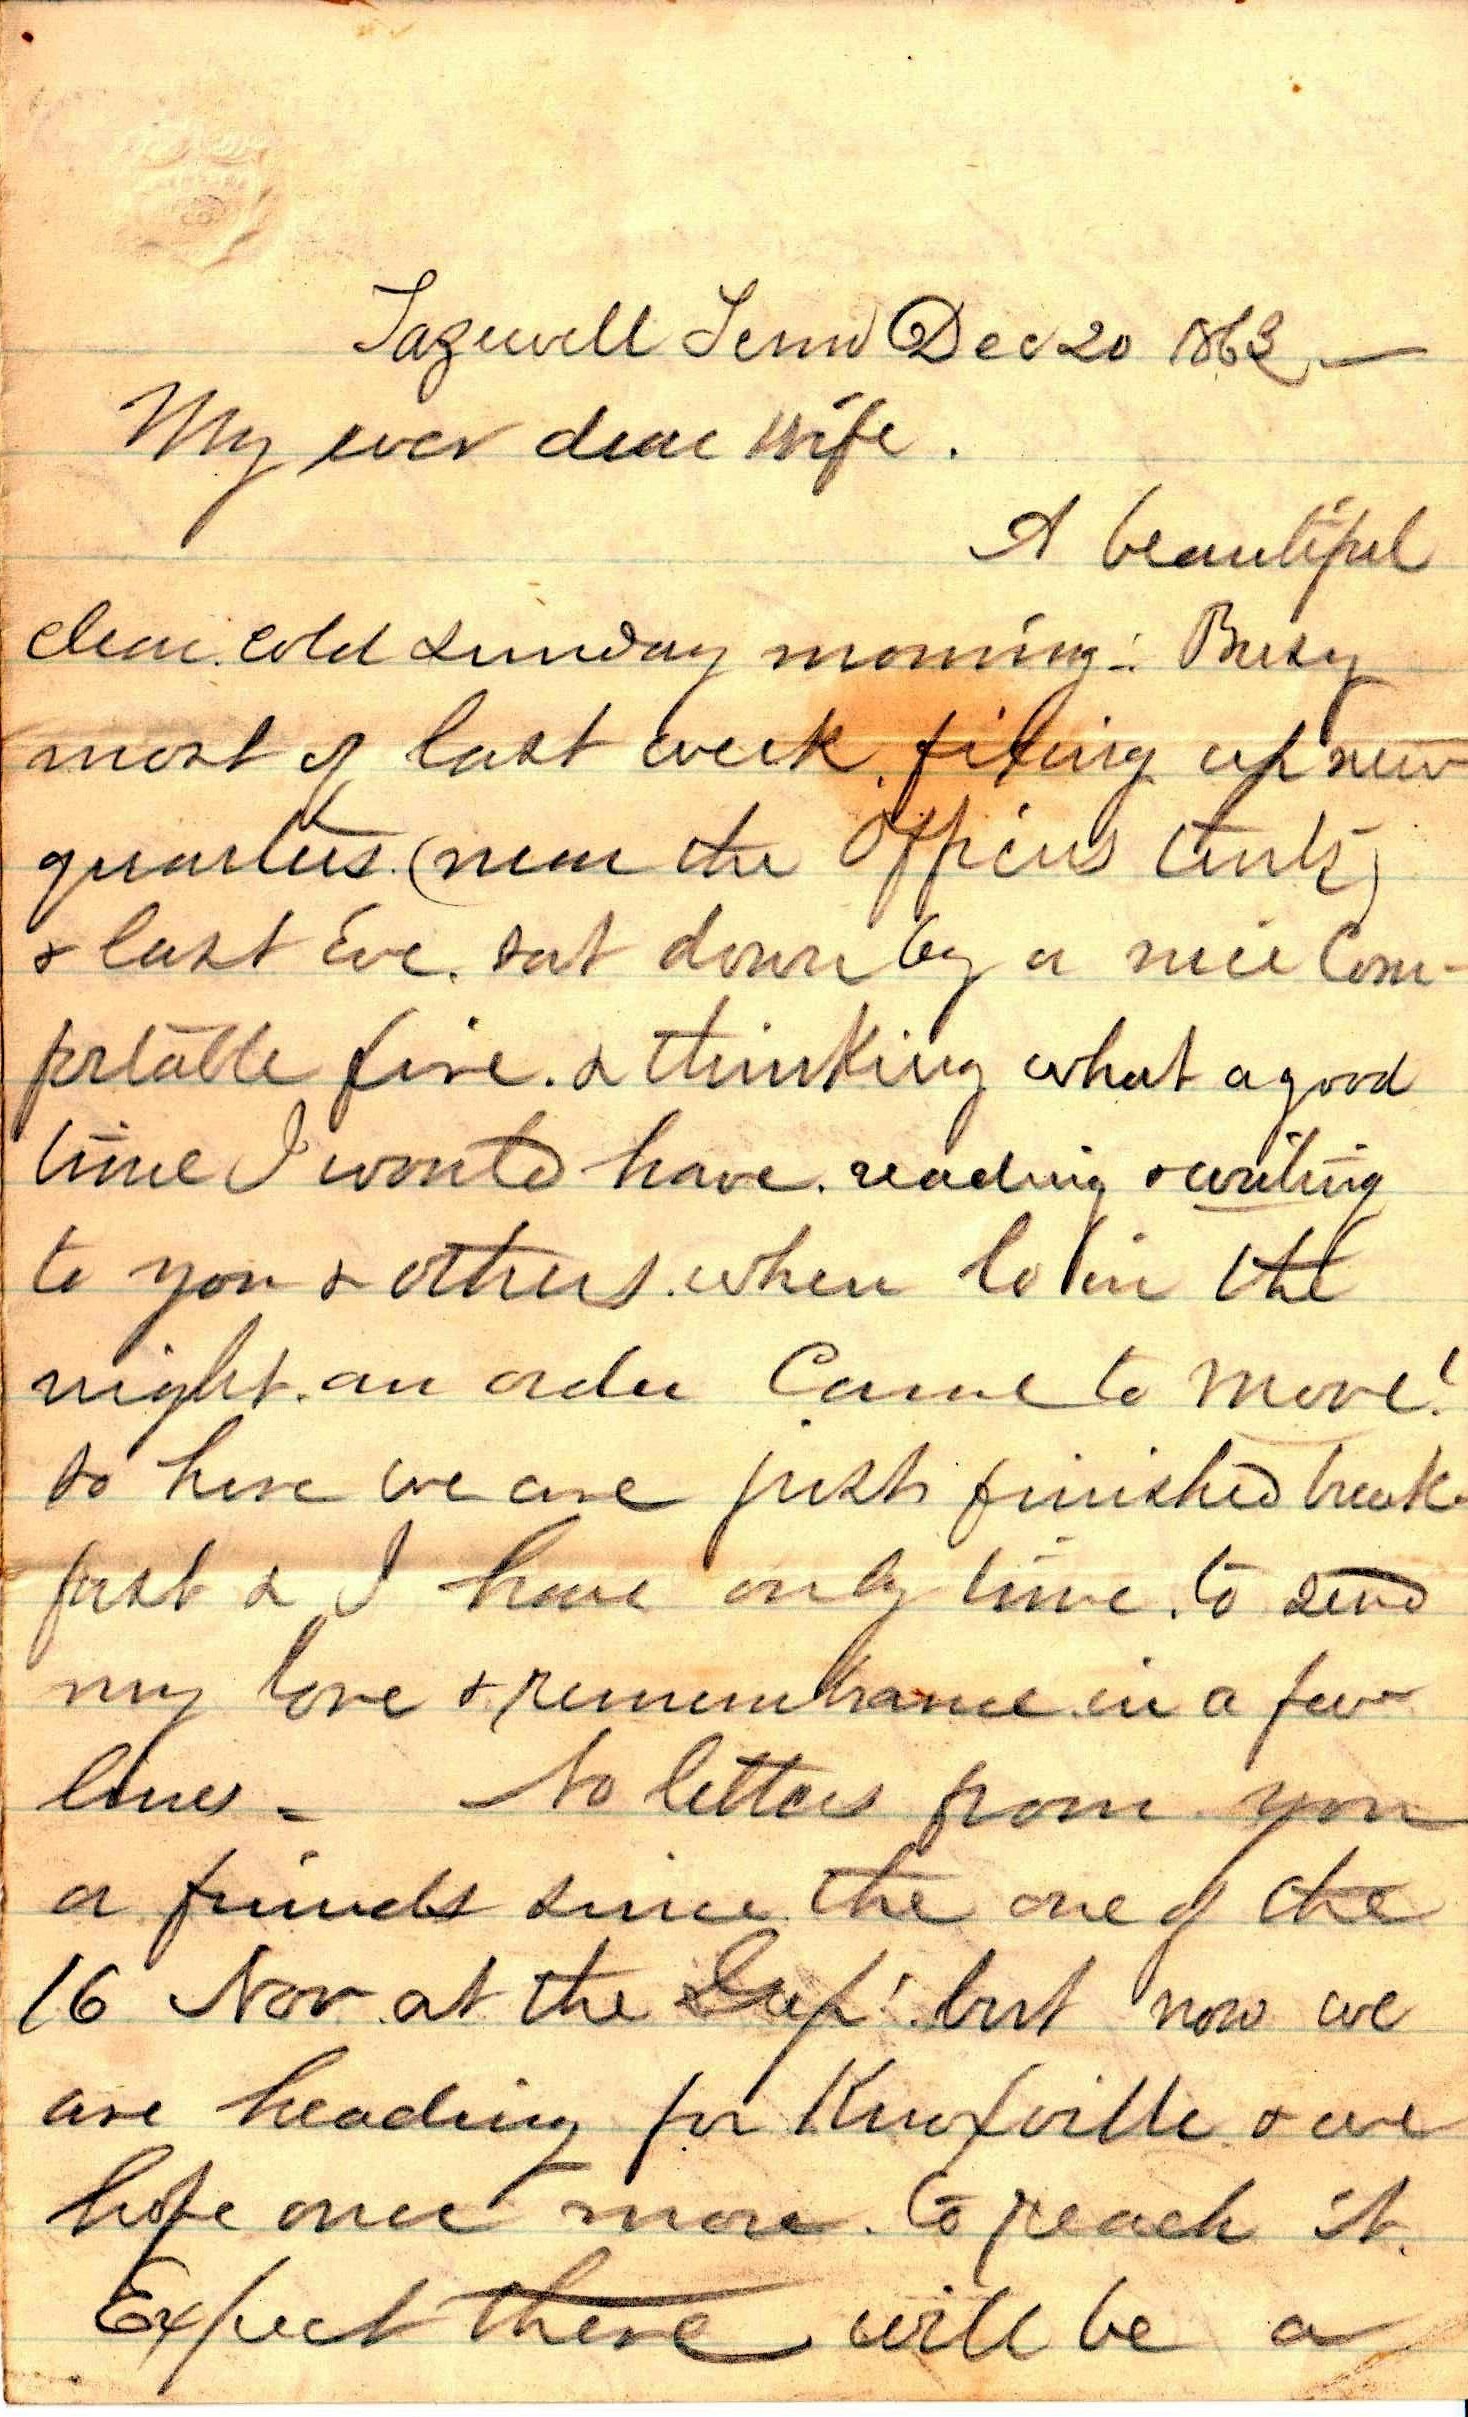 Tazewell Tenn Dec 20 1863 —
My ever dear Wife.
A beautiful
clear. cold sunday morning: Busy
most of last week. fixing up new
quarters. (near the Officers tents)
& last Eve. sat down by a nice Com-
fortable fire. & thinking what a good
time I would have. reading & writing
to you & others. when lo in the
night. an order Came to move!
so here we are just finished break-
fast & I have only time. to send
my love & remembrance in a few
lines - No letters from you
or friends since the one of the
16 Nov. at the Gap! but now we
are heading for Knoxville & we
hope once more. to reach it.
Expect there will be a